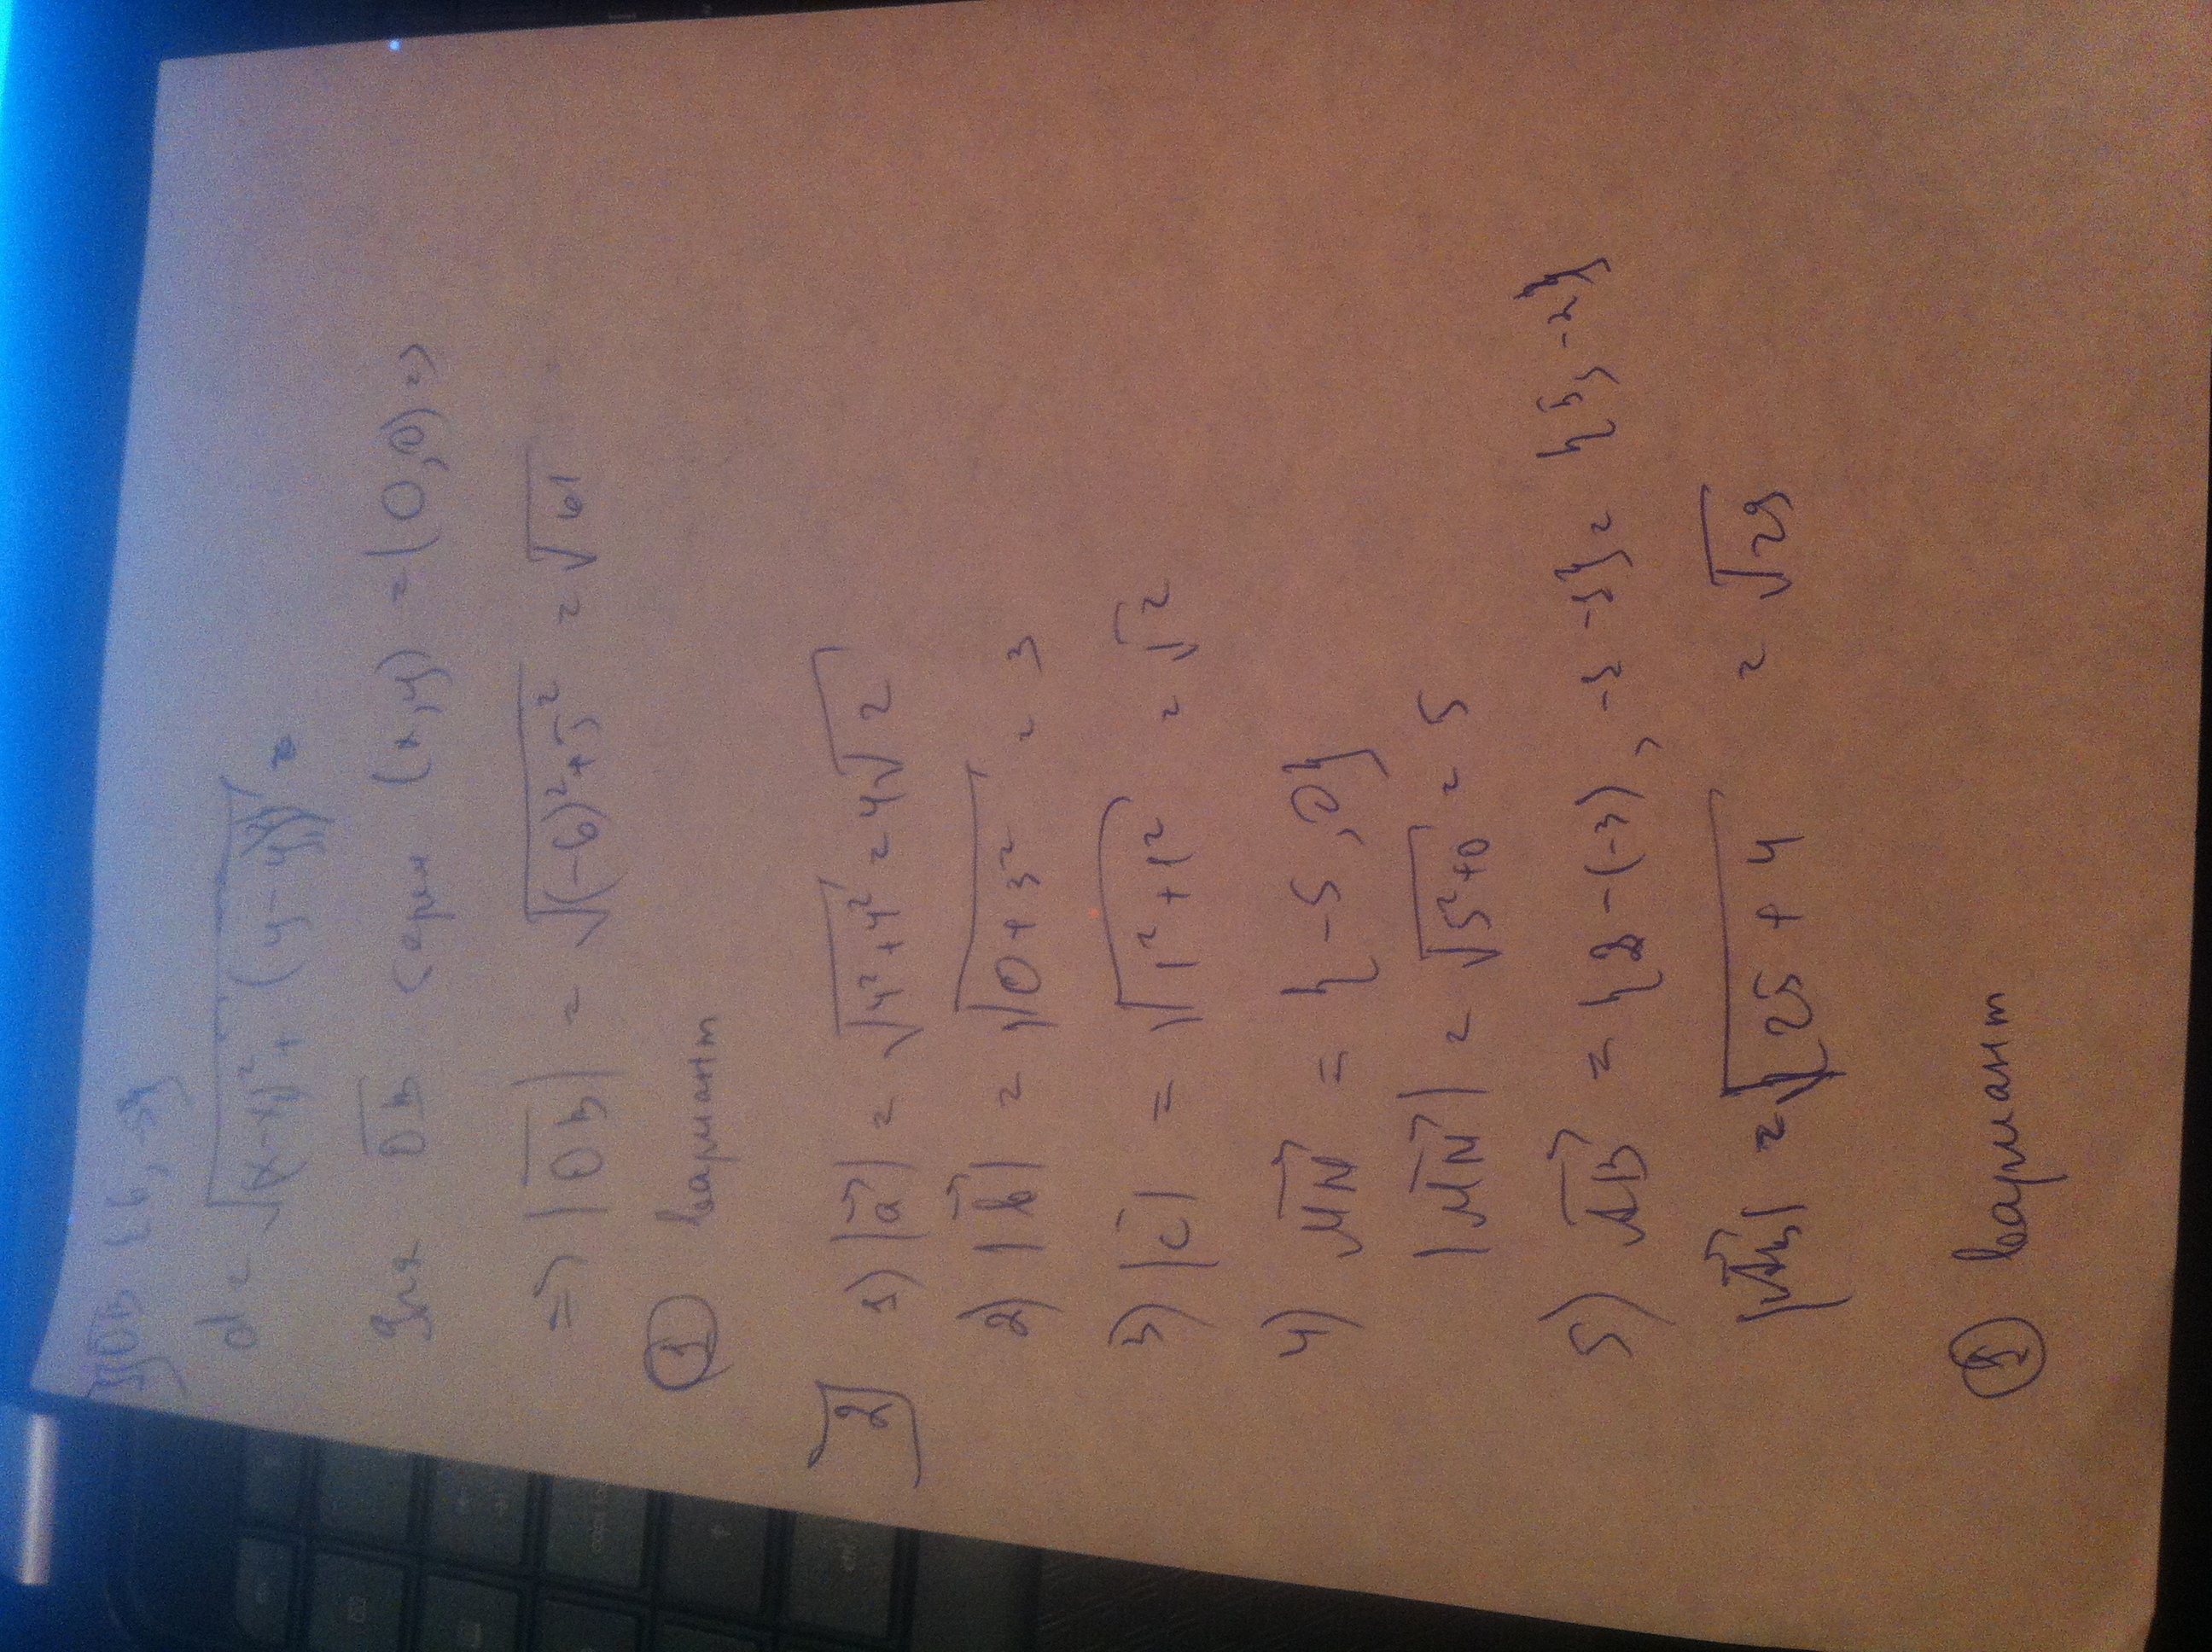 3) OB {6, -5}
d = √(x-x₁)² + (y-y₁)² =
для OB серии (x,y) = (0,0) =>
=> |OB| = √(-6)²+5² = √61
① вариант
2 1) |a| = √4²+4² = 4√2
2) |b| = √0+3² = 3
3) |c| = √1²+1² = √2
4) MN = {-5, 0}
|MN| = √5²+0 = 5
5) AB = {2-(-3), -5 -3} = {5, -2}
|AB| = √25+4 = √29
② вариант